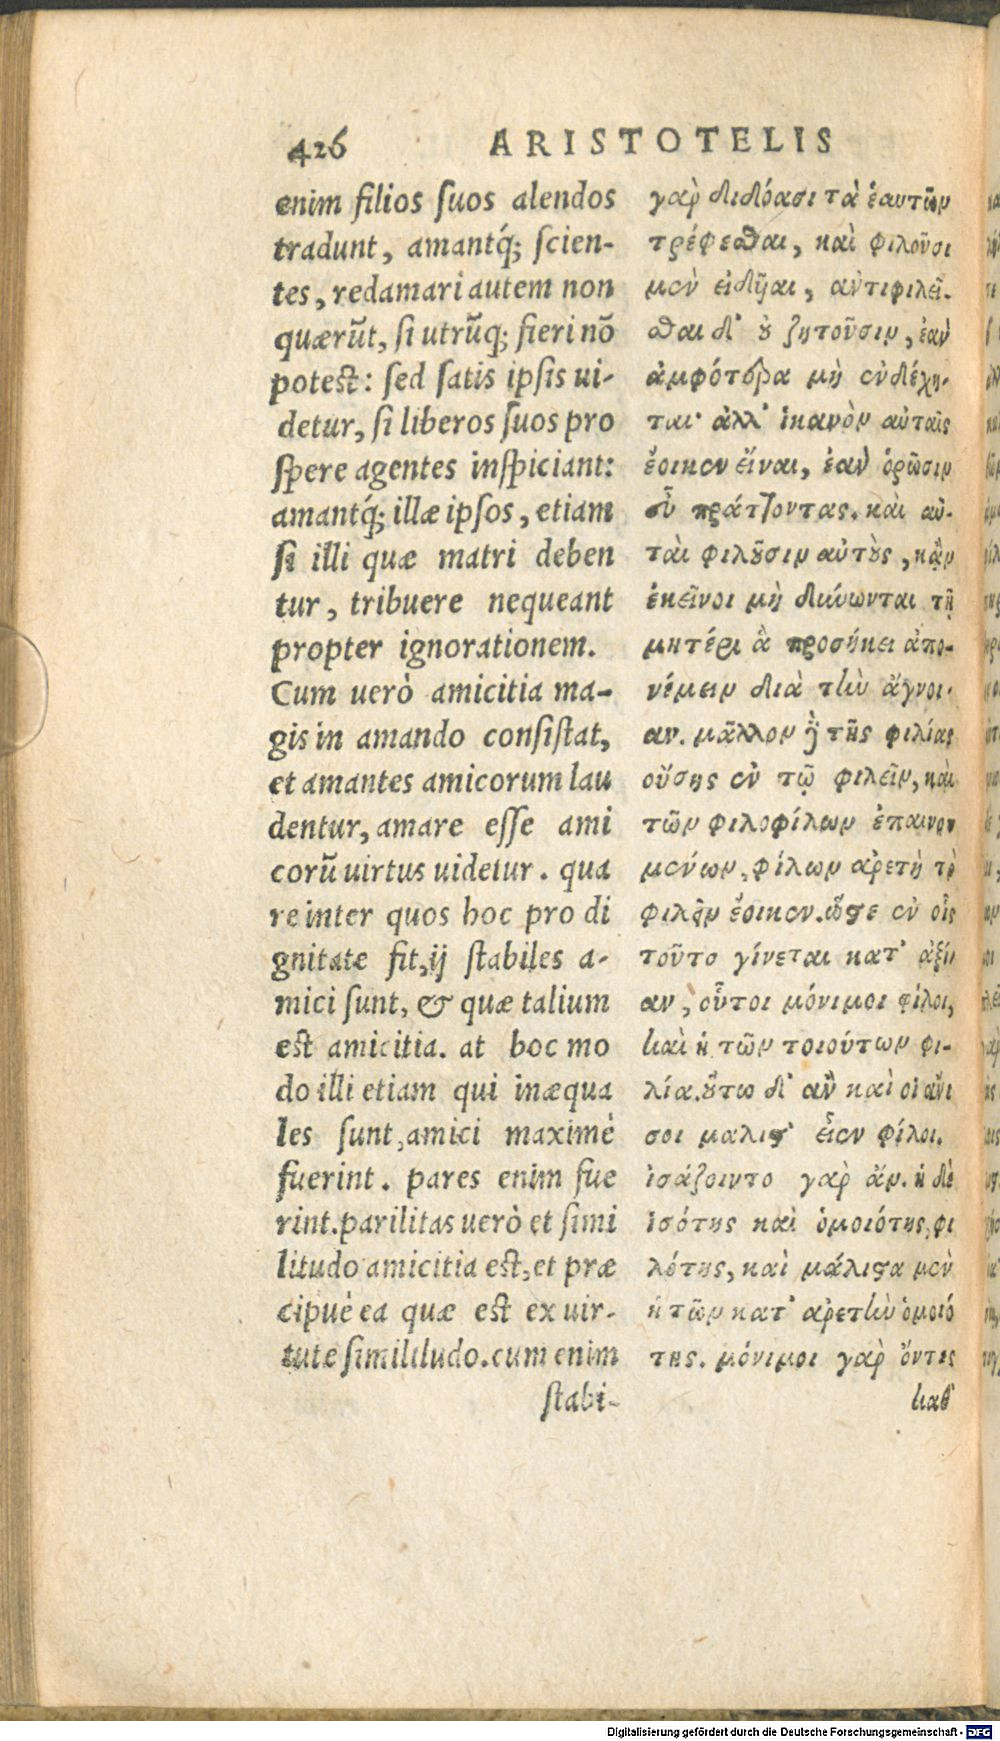 426 ARISTOTELIS
enim filios ſuos alendos
tradunt, amantq́; ſcien-
tes, redamari autem non
quærũt, ſi utrũq; fieri nõ
poteſt: ſed ſatis ipſis ui-
detur, ſi liberos ſuos pro
ſpere agentes inſpiciant:
amantq́; illæ ipſos, etiam
ſi illi quæ matri deben
tur, tribuere nequeant
propter ignorationem.
Cum uerò amicitia ma-
gis in amando conſiſtat,
et amantes amicorum lau
dentur, amare eſſe ami
corũ uirtus uidetur. qua
re inter quos hoc pro di
gnitate fit, ij ſtabiles a-
mici ſunt, & quæ talium
eſt amicitia. at hoc mo
do illi etiam qui inæqua
les ſunt, amici maximè
fuerint. pares enim fue
rint. parilitas uerò et ſimi
litudo amicitia eſt, et præ
cipuè ea quæ eſt ex uir-
tute ſimilitudo. cum enim
ſtabi-
γαρ̀ διδόασι τὰ ἑαυτῶν
τρέφεσθαι, καὶ φιλοῦσι
μὲν εἰδῆαι, ἀντιφιλεῖ-
σθαι δ' οὐ ζητοῦσιν, ἐὰν
ἀμφότερα μὴ ἐνδέχη-
ται· ἀλλ' ἱκανὸν αὐταῖς
ἔοικεν εἶναι, ἐὰν ὁρῶσιν
εὖ πράττοντας. καὶ αὐ-
ταὶ φιλοῦσιν αὐτοὺς, κἂν
ἐκεῖνοι μὴ δύνωνται τῇ
μητέρι ἃ προσήκει ἀπο-
νέμειν διὰ τὴν ἄγνοι-
αν. μᾶλλον δὲ τῆς φιλίας
οὔσης ἐν τῷ φιλεῖν, καὶ
τῶν φιλοφίλων ἐπαινου
μένων, φίλων ἀρετὴ τὸ
φιλεῖν ἔοικεν. ὥστε ἐν οἷς
τοῦτο γίνεται κατ' ἀξί
αν, οὗτοι μόνιμοι φίλοι,
καὶ ἡ τῶν τοιούτων φι-
λία. οὕτω δ' ἂν καὶ οἱ ἄνι
σοι μάλιστ' εἶεν φίλοι.
ἰσάζοιντο γὰρ ἄν. ἡ δὲ
ἰσότης καὶ ὁμοιότης, φι
λότης, καὶ μάλιστα μὲν
ἡ τῶν κατ' ἀρετὴν ὁμοιό
της. μόνιμοι γὰρ ὄντες
καθ'
Digitalisierung gefördert durch die Deutsche Forschungsgemeinschaft - DFG